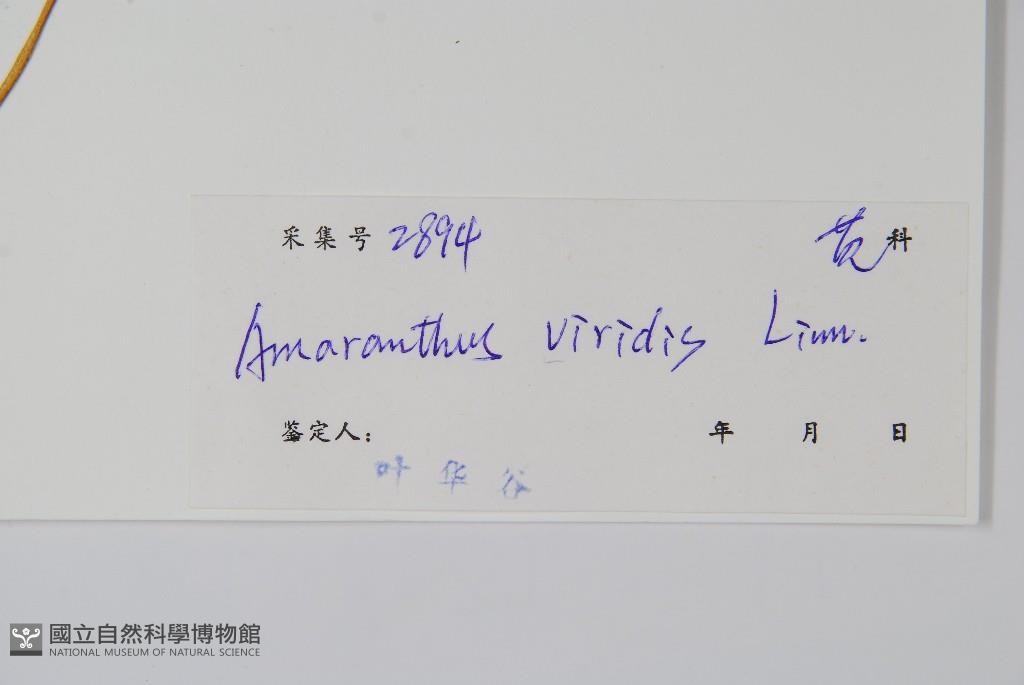 采集号 2894 苋科
Amaranthus viridis Linn.
鉴定人： 年 月 日
叶华谷
國立自然科學博物館
NATIONAL MUSEUM OF NATURAL SCIENCE